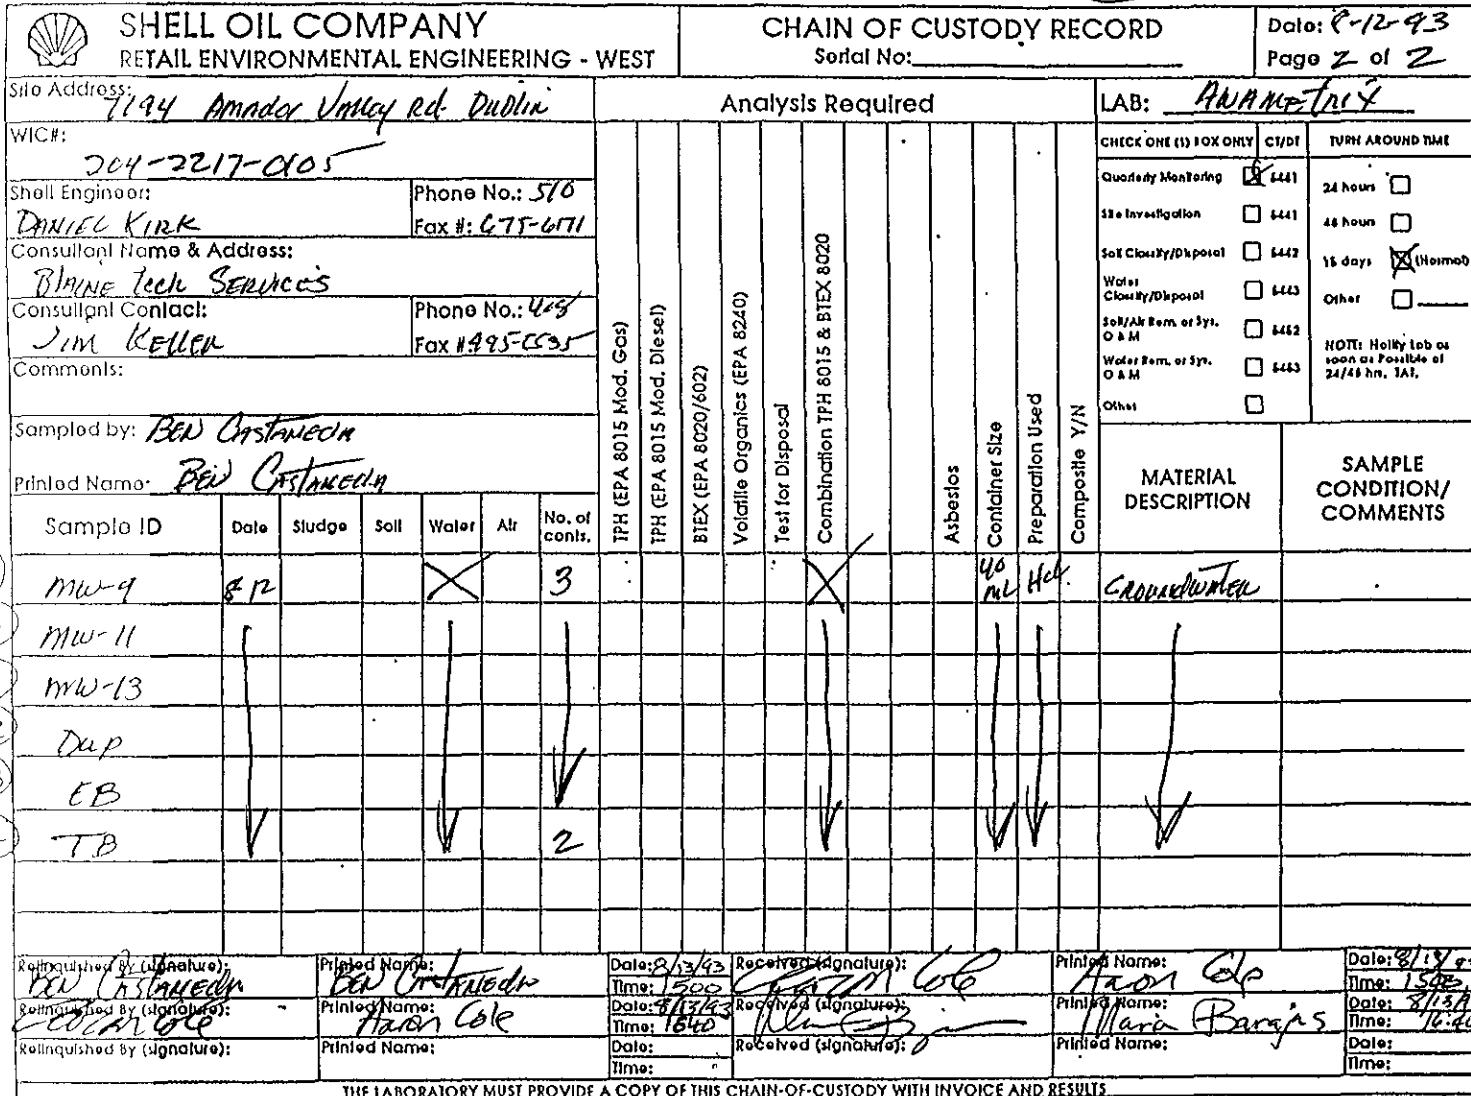 SHELL OIL COMPANY
RETAIL ENVIRONMENTAL ENGINEERING - WEST
CHAIN OF CUSTODY RECORD
Serial No:
Date: 8-12-93
Page 2 of 2
Site Address: 7194 Amador Valley Rd. Dublin
WIC#: 204-2217-0105
Shell Engineer: DANIEL KIRK
Phone No.: 510
Fax #: 675-6171
Consultant Name & Address:
BLAINE Tech SERVICES
Consultant Contact: JIM KELLER
Phone No.: 408
Fax # 995-5535
Comments:
Sampled by: BEN CASTANEDA
Printed Name: BEN CASTANEDA
Analysis Required
LAB: ANAMETRIX
CHECK ONE (1) BOX ONLY CT/DT
Quarterly Monitoring 6441
Site Investigation 6441
Soil Classify/Disposal 6442
Water Classify/Disposal 6443
Soil/Air Rem. or Sys. O & M 6452
Water Rem. or Sys. O & M 6453
Other
TURN AROUND TIME
24 hours
48 hours
15 days (Normal)
Other
NOTE: Notify Lab as soon as Possible of 24/48 hrs. TAT.
Sample ID Date Sludge Soil Water Air No. of conts.
TPH (EPA 8015 Mod. Gas)
TPH (EPA 8015 Mod. Diesel)
BTEX (EPA 8020/602)
Volatile Organics (EPA 8240)
Test for Disposal
Combination TPH 8015 & BTEX 8020
Asbestos
Container Size
Preparation Used
Composite Y/N
MATERIAL DESCRIPTION
SAMPLE CONDITION/ COMMENTS
MW-9 8 12 X 3 X 40 mL Hcl. GROUNDWATER
MW-11
MW-13
Dup
EB
TB 2
Relinquished By (signature): BEN CASTANEDA
Printed Name: BEN CASTANEDA
Date: 8/13/93
Time: 1500
Received (signature): Aaron Cole
Printed Name: Aaron Cole
Date: 8/13/93
Time: 1500
Relinquished By (signature): Aaron Cole
Printed Name: Aaron Cole
Date: 8/13/93
Time: 1640
Received (signature):
Printed Name: Maria Barajas
Date: 8/13/
Time: 16:40
Relinquished By (signature):
Printed Name:
Date:
Time:
Received (signature):
Printed Name:
Date:
Time:
THE LABORATORY MUST PROVIDE A COPY OF THIS CHAIN-OF-CUSTODY WITH INVOICE AND RESULTS